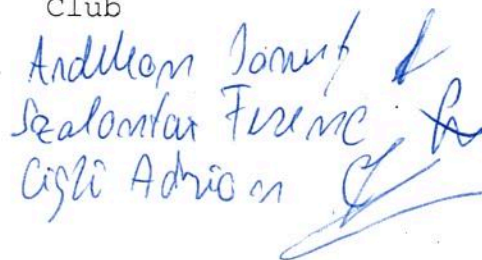 Club
Ionuț
Szalontai Ferenc
Cigli Adrian